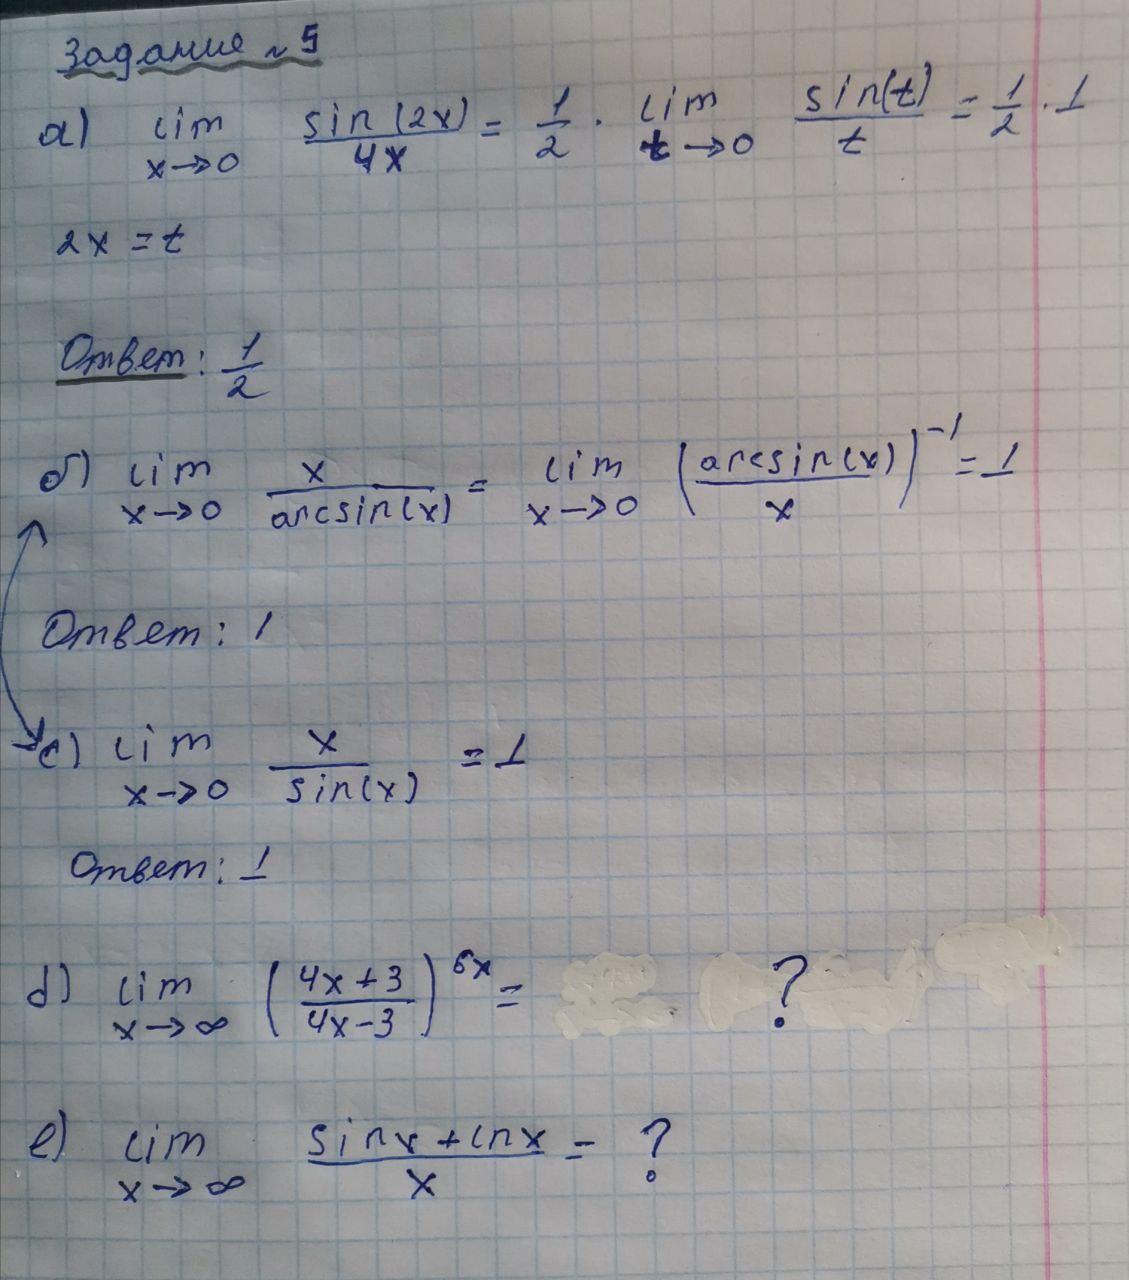 Задание №5
a) lim x→0 sin(2x)/4x = 1/2 · lim t→0 sin(t)/t = 1/2 · 1
2x = t
Ответ: 1/2
б) lim x→0 x/arcsin(x) = lim x→0 (arcsin(x)/x)^-1 = 1
Ответ: 1
c) lim x→0 x/sin(x) = 1
Ответ: 1
d) lim x→∞ ((4x+3)/(4x-3))^6x = ?
e) lim x→∞ (sinx+lnx)/x = ?